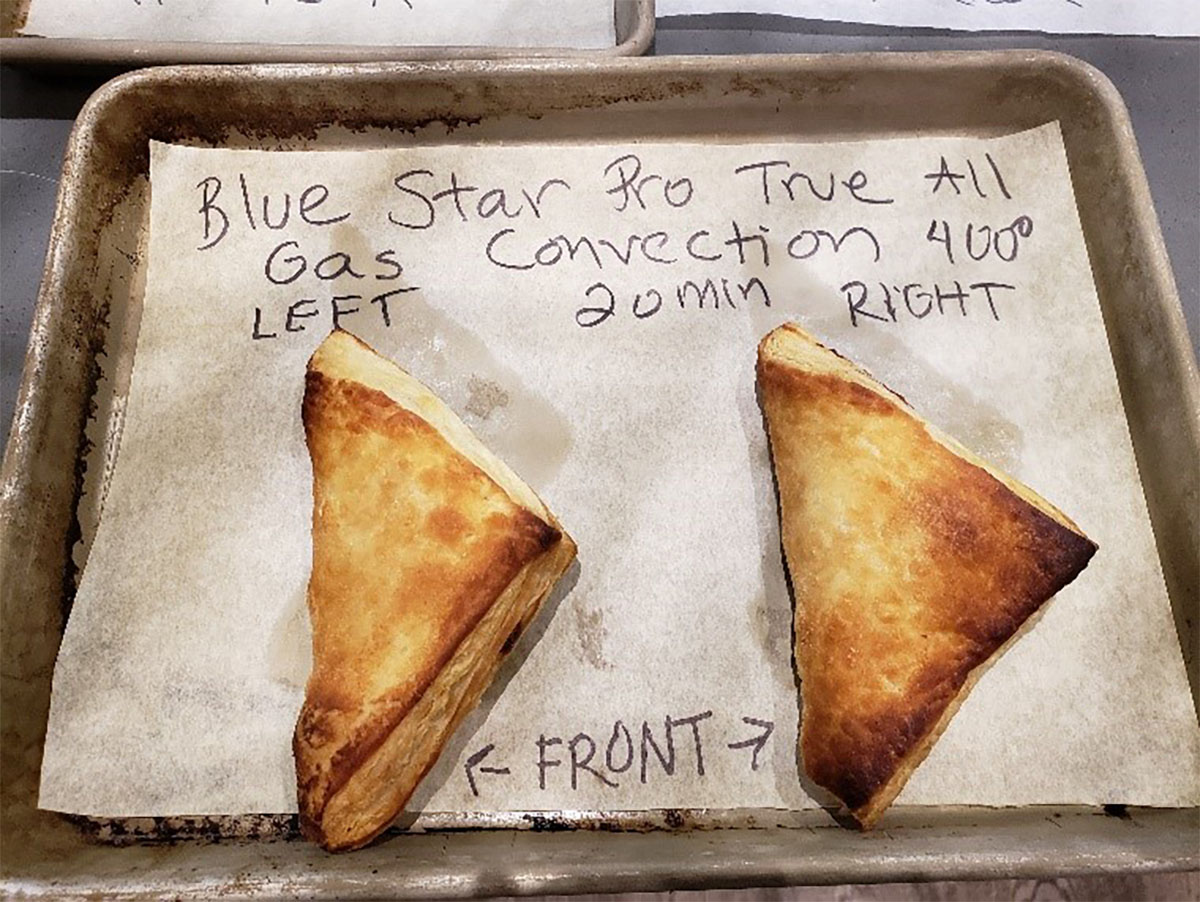 Blue Star Pro True All
Gas Convection 400°
LEFT 20 min RIGHT
← FRONT →